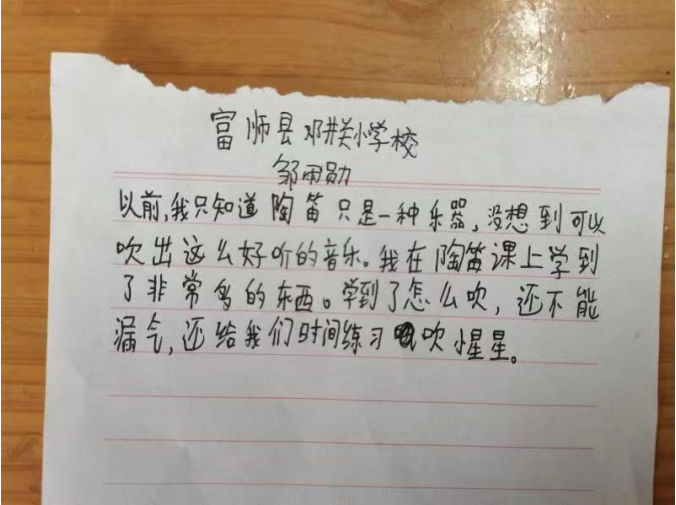 富顺县邓井关小学校
邹雨勋
以前,我只知道陶笛只是一种乐器,没想到可以
吹出这么好听的音乐。我在陶笛课上学到
了非常多的东西。学到了怎么吹,还不能
漏气,还给我们时间练习吹小星星。